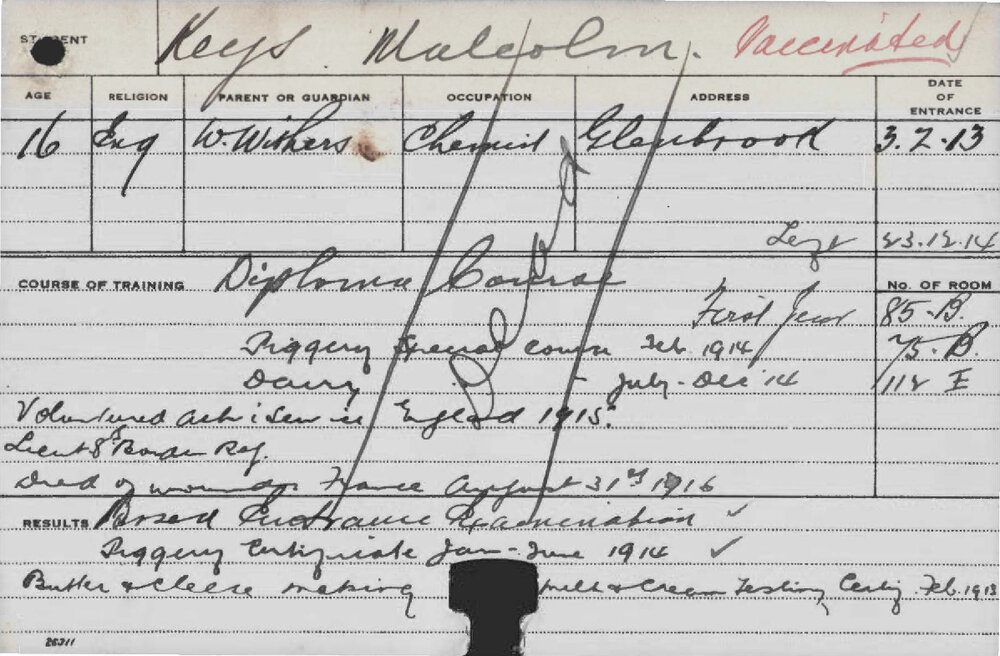 STUDENT Keys Malcolm. Vaccinated
AGE RELIGION PARENT OR GUARDIAN OCCUPATION ADDRESS DATE OF ENTRANCE
16 Eng W. Withers Chemist Glenbrook 3.2.13
23.12.14
COURSE OF TRAINING Diploma Course No. OF ROOM
First Year 85-B.
Piggery Special course Feb. 1914 75-B.
Dairy - July-Dec '14 112 E
Deceased
England 1915.
Lieut 8th Border Reg.
Died of wounds France August 31st 1916
RESULTS Passed Entrance Examination ✓
Piggery Certificate Jan-June 1914 ✓
Butter & Cheese making Milk & Cream Testing Certif. Feb. 1915
26311